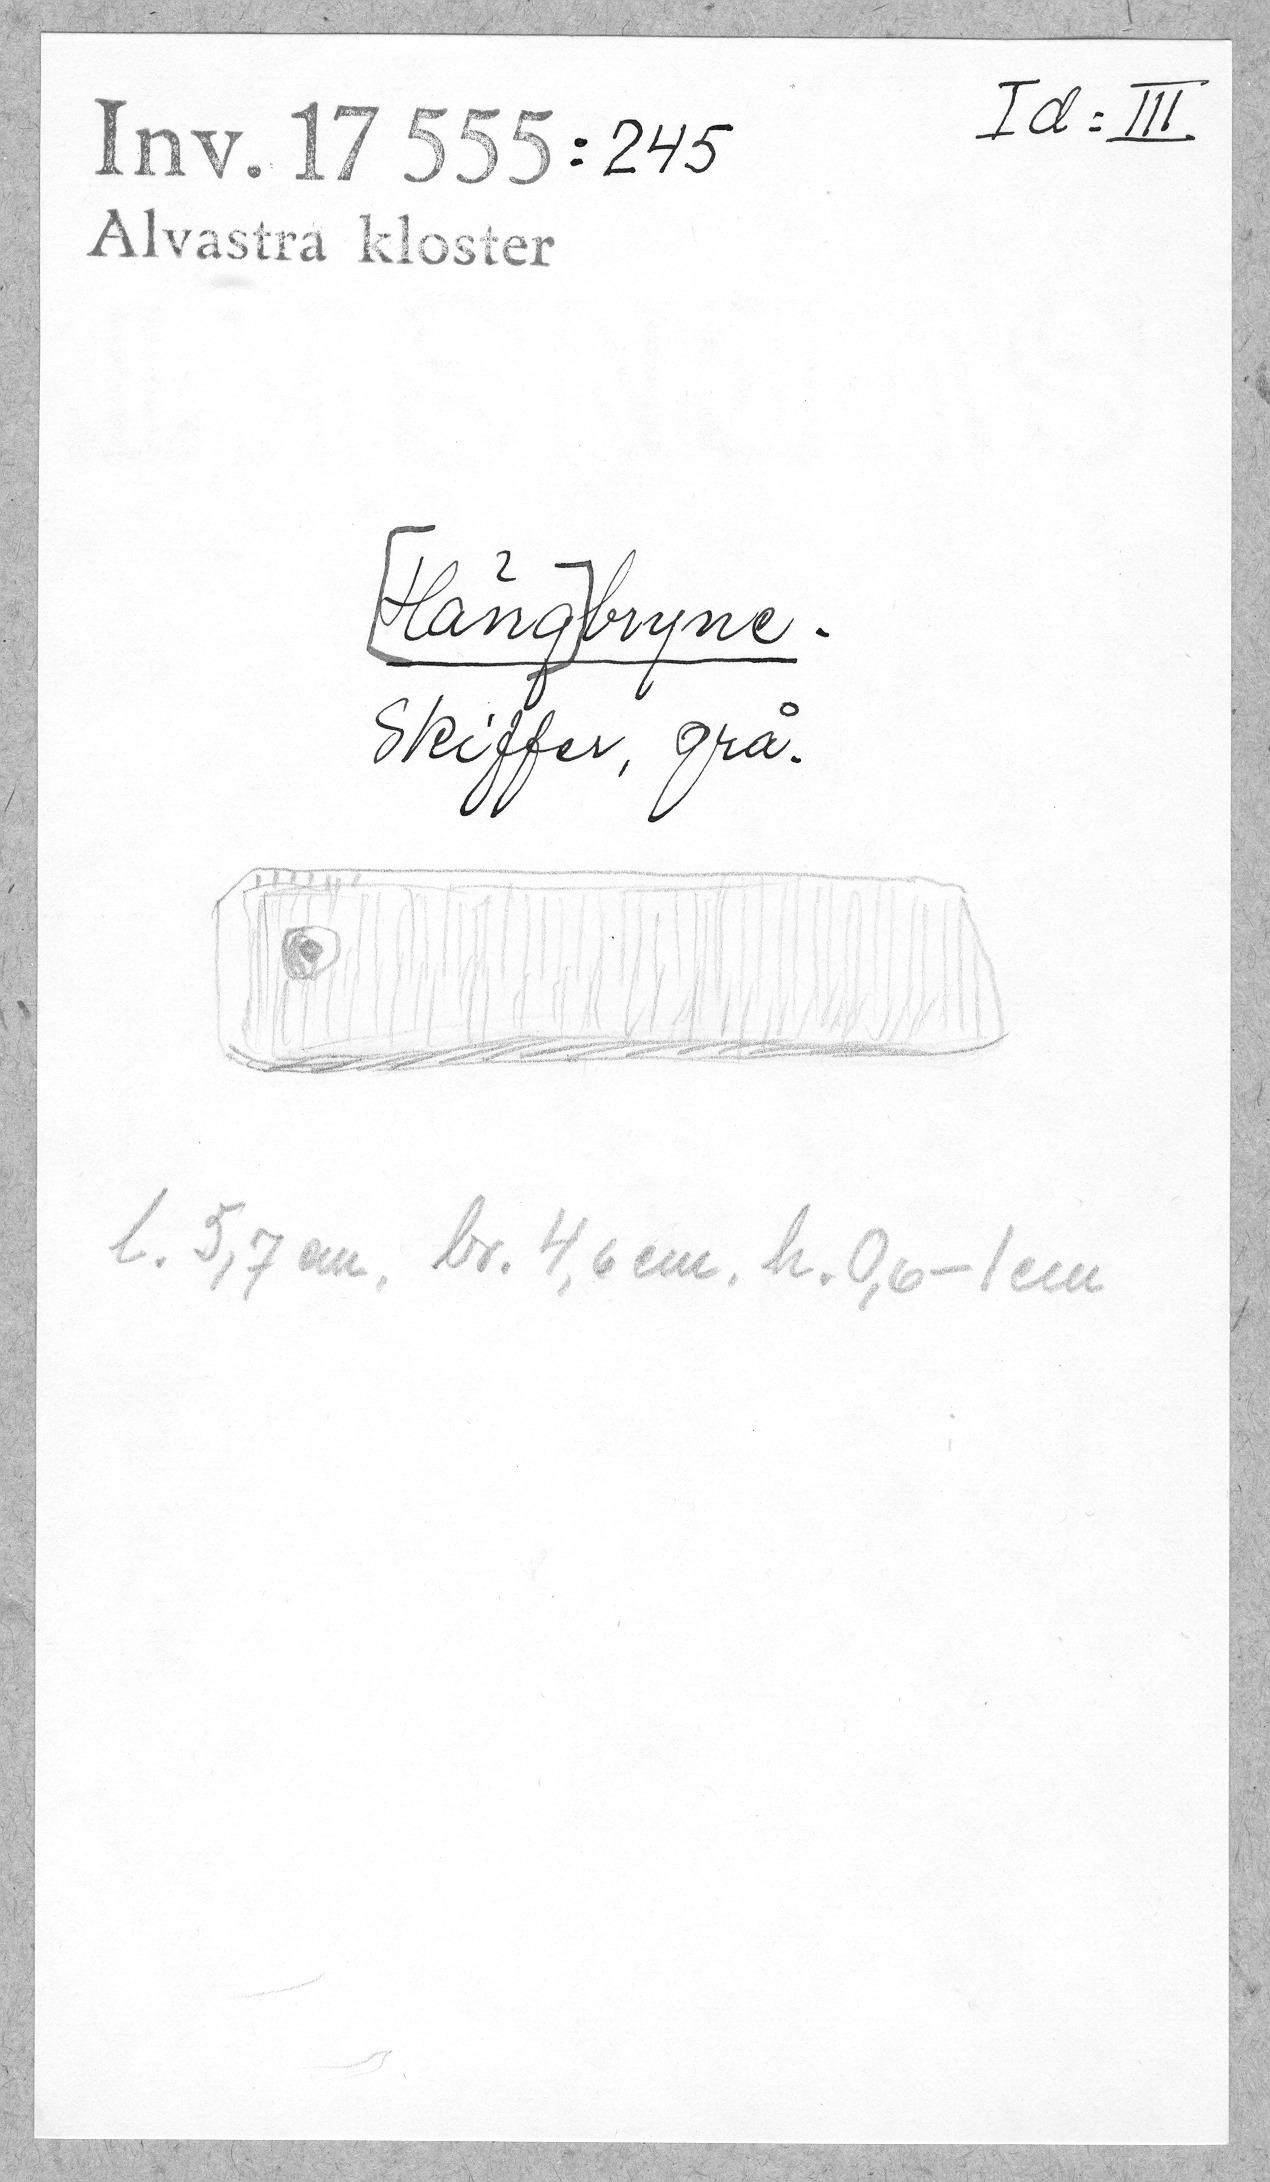 Inv. 17 555:245
Id: III
Alvastra kloster
[Häng]bryne.
Skiffer, grå.
l. 5,7 cm, br. 4,6 cm. h. 0,6-1 cm